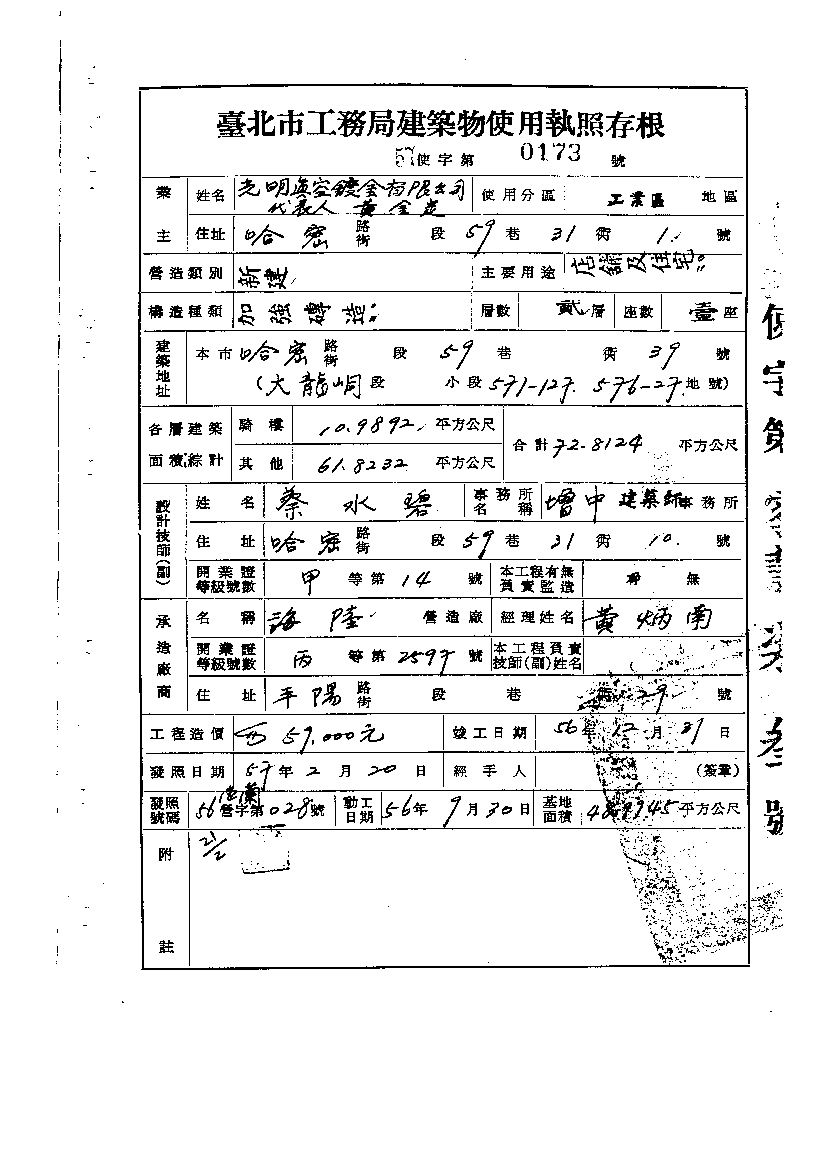 臺北市工務局建築物使用執照存根
57使字第 0173 號
業主 姓名 光明真空鍍金有限公司 代表人 黃金 使用分區 工業區 地區
住址 哈密 路街 段 59 巷 31 衖 1. 號
營造類別 新建 主要用途 店舖及住宅
構造種類 加強磚造 層數 貳層 座數 壹座
建築地址 本市 哈密 路街 段 59 巷 衖 39 號
(大龍峒 段 小段 571-127. 576-27. 地號)
各層建築面積綜計 騎樓 10.9892 平方公尺 合計 72.8124 平方公尺
其他 61.8232 平方公尺
設計技師(副) 姓名 蔡水碧 事務所名稱 增中 建築師事務所
住址 哈密 路街 段 59 巷 31 衖 10. 號
開業證等級號數 甲 等第 14 號 本工程有無負責監造 無
承造廠商 名稱 海陸 營造廠 經理姓名 黃炳南
開業證等級號數 丙 等第 2597 號 本工程負責技師(副)姓名
住址 平陽 路街 段 巷 衖 29. 號
工程造價 59,000元 竣工日期 56年12月31日
發照日期 57年2月20日 經手人 (簽章)
發照號碼 56 營字第028號 動工日期 56年9月30日 基地面積 平方公尺
附註 21/2